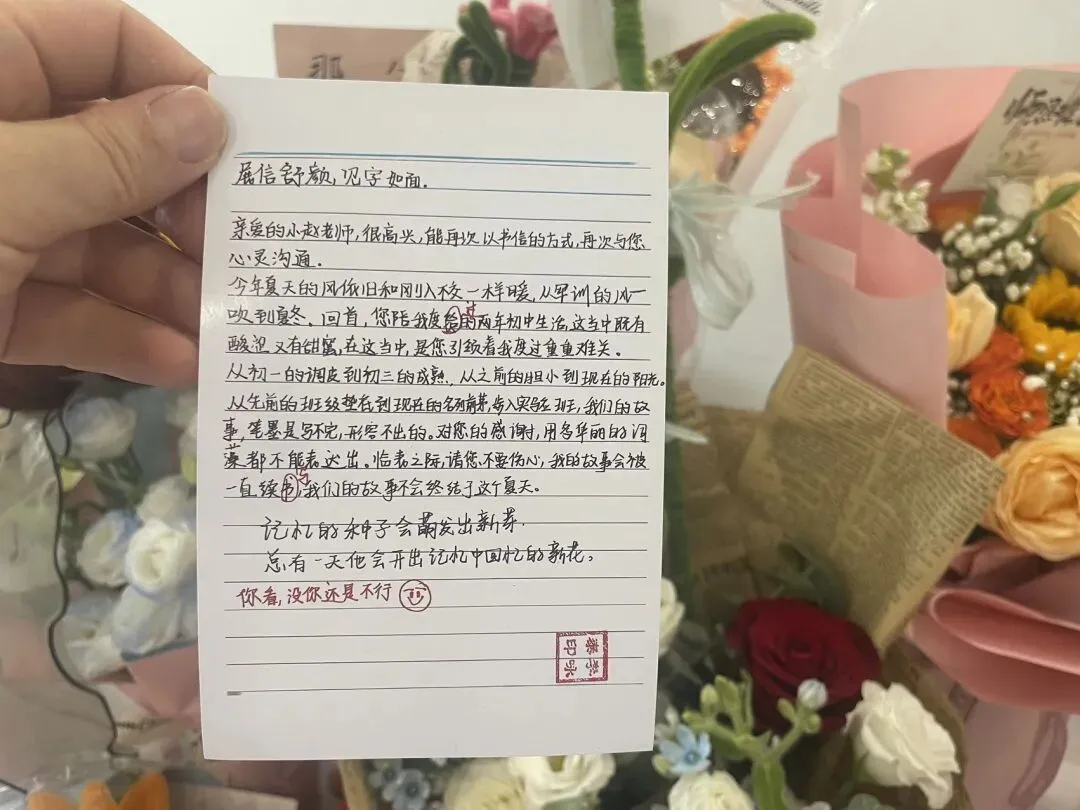 展信舒颜,见字如面.
亲爱的小赵老师,很高兴,能再次以书信的方式,再次与您
心灵沟通.
今年夏天的风依旧和刚入校一样暖,从军训的风一
吹到夏冬、回首,您陪我度给过的两年初中生活,这当中既有
酸涩又有甜蜜,在这当中,是您引领着我度过重重难关。
从初一的调皮到初三的成熟,从之前的胆小到现在的阳光.
从先前的班级垫底到现在的名列前茅,步入实验班,我们的故
事,笔墨是写不完,形容不出的。对您的感谢时,用多华丽的词
藻都不能表达出。临表之际,请您不要伤心,我的故事会被
一直续写,我们的故事不会终结于这个夏天。
记忆的种子会萌发出新芽.
总有一天他会开出记忆中回忆的新花。
你看,没你还是不行
印